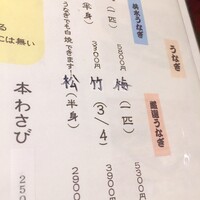 うなぎ
共水うなぎ
（一匹）
5800円
（半身）
3700円
うなぎでも白焼できます！
国産うなぎ
梅（一匹）
5300円
竹（3/4）
3900円
松（半身）
2900円
本わさび
250
には無い